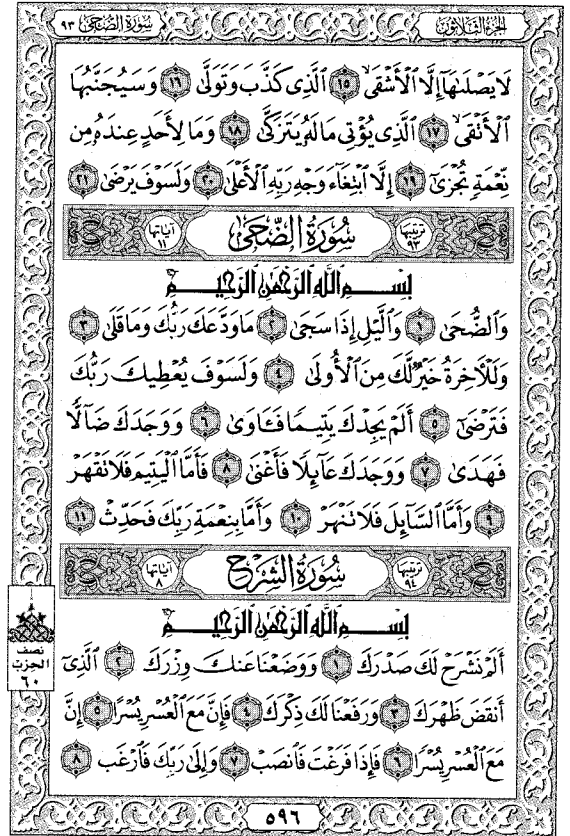 سورة الضحى ٩٣
الجزء الثلاثون
لَا يَصْلَىٰهَآ إِلَّا ٱلْأَشْقَى ١٥ ٱلَّذِى كَذَّبَ وَتَوَلَّىٰ ١٦ وَسَيُجَنَّبُهَا
ٱلْأَتْقَى ١٧ ٱلَّذِى يُؤْتِى مَالَهُۥ يَتَزَكَّىٰ ١٨ وَمَا لِأَحَدٍ عِندَهُۥ مِن
نِّعْمَةٍ تُجْزَىٰٓ ١٩ إِلَّا ٱبْتِغَآءَ وَجْهِ رَبِّهِ ٱلْأَعْلَىٰ ٢٠ وَلَسَوْفَ يَرْضَىٰ ٢١
ترتيبها ٩٣ سُورَةُ الضُّحَىٰ آياتها ١١
بِسْمِ ٱللَّهِ ٱلرَّحْمَٰنِ ٱلرَّحِيمِ
وَٱلضُّحَىٰ ١ وَٱلَّيْلِ إِذَا سَجَىٰ ٢ مَا وَدَّعَكَ رَبُّكَ وَمَا قَلَىٰ ٣
وَلَلْءَاخِرَةُ خَيْرٌ لَّكَ مِنَ ٱلْأُولَىٰ ٤ وَلَسَوْفَ يُعْطِيكَ رَبُّكَ
فَتَرْضَىٰٓ ٥ أَلَمْ يَجِدْكَ يَتِيمًا فَـَٔاوَىٰ ٦ وَوَجَدَكَ ضَآلًّا
فَهَدَىٰ ٧ وَوَجَدَكَ عَآئِلًا فَأَغْنَىٰ ٨ فَأَمَّا ٱلْيَتِيمَ فَلَا تَقْهَرْ
٩ وَأَمَّا ٱلسَّآئِلَ فَلَا تَنْهَرْ ١٠ وَأَمَّا بِنِعْمَةِ رَبِّكَ فَحَدِّثْ ١١
ترتيبها ٩٤ سُورَةُ الشَّرْحِ آياتها ٨
بِسْمِ ٱللَّهِ ٱلرَّحْمَٰنِ ٱلرَّحِيمِ
أَلَمْ نَشْرَحْ لَكَ صَدْرَكَ ١ وَوَضَعْنَا عَنكَ وِزْرَكَ ٢ ٱلَّذِىٓ
أَنقَضَ ظَهْرَكَ ٣ وَرَفَعْنَا لَكَ ذِكْرَكَ ٤ فَإِنَّ مَعَ ٱلْعُسْرِ يُسْرًا ٥ إِنَّ
مَعَ ٱلْعُسْرِ يُسْرًا ٦ فَإِذَا فَرَغْتَ فَٱنصَبْ ٧ وَإِلَىٰ رَبِّكَ فَٱرْغَب ٨
نصف
الحزب
٦٠
٥٩٦